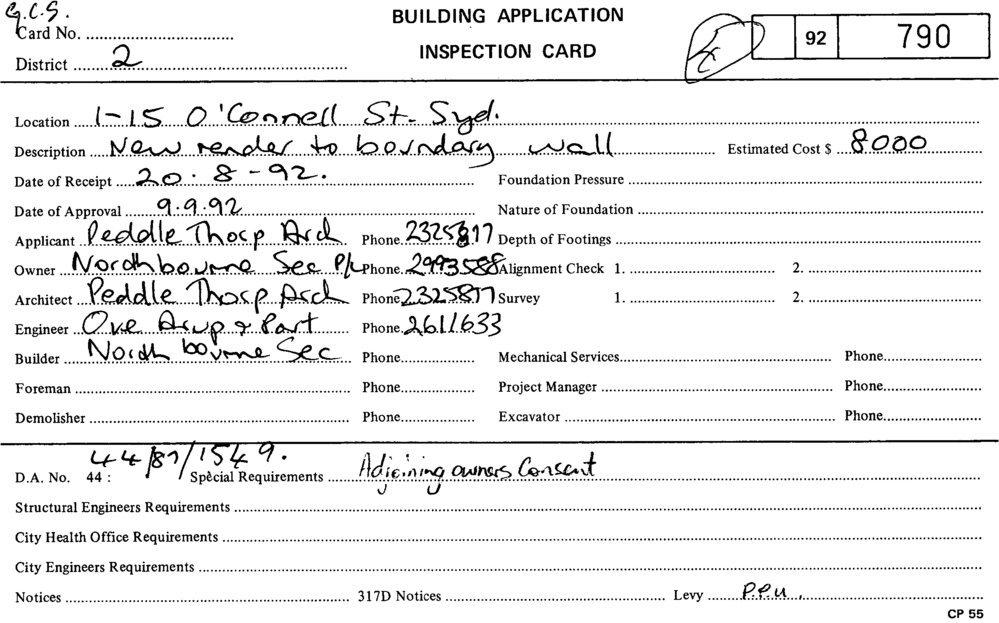 G.C.S. BUILDING APPLICATION
Card No. 92 790
District 2 INSPECTION CARD
Location 1-15 O'Connell St. Syd.
Description New render to boundary wall Estimated Cost $ 8000
Date of Receipt 20.8-92. Foundation Pressure
Date of Approval 9.9.92 Nature of Foundation
Applicant Peddle Thorp Arch Phone 2325877 Depth of Footings
Owner Northbourne Sec P/L Phone. 2993588 Alignment Check 1. 2.
Architect Peddle Thorp Arch Phone 2325877 Survey 1. 2.
Engineer Ove Arup & Part Phone. 2611633
Builder North bourne Sec Phone Mechanical Services Phone
Foreman Phone Project Manager Phone
Demolisher Phone Excavator Phone
D.A. No. 44 : 44/87/1549. Special Requirements Adjoining owners Consent
Structural Engineers Requirements
City Health Office Requirements
City Engineers Requirements
Notices 317D Notices Levy
CP 55